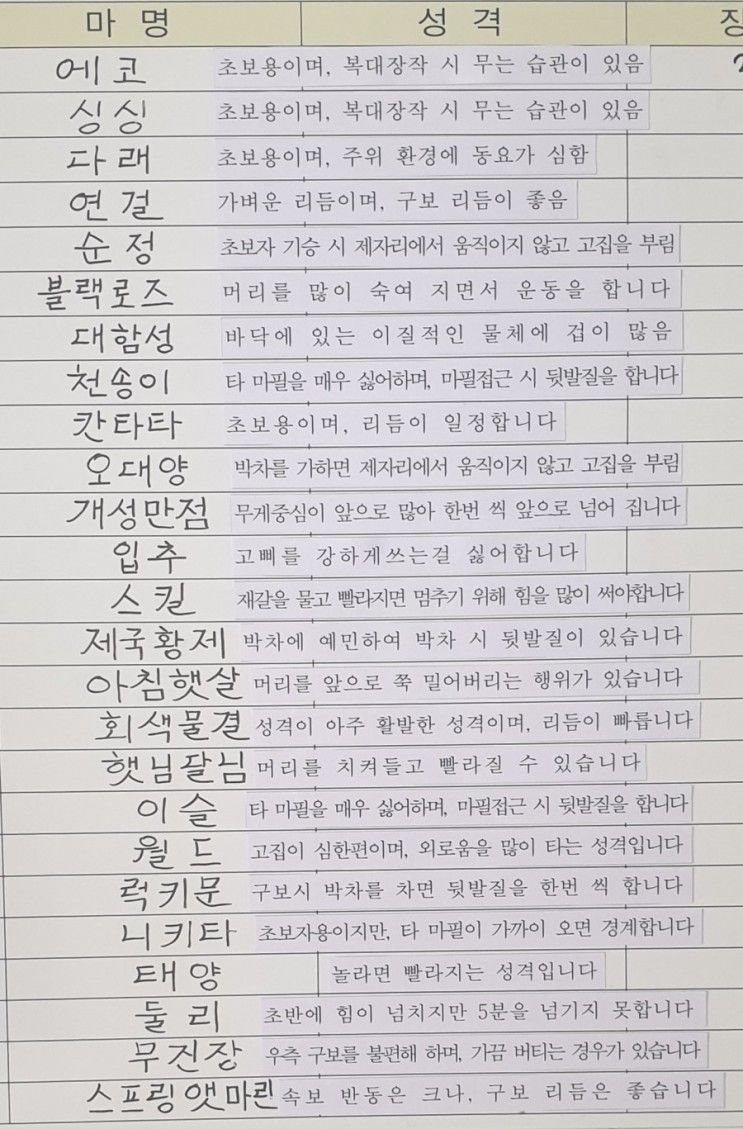 마명 성격
에코 초보용이며, 복대장작 시 무는 습관이 있음
싱싱 초보용이며, 복대장작 시 무는 습관이 있음
다래 초보용이며, 주위 환경에 동요가 심함
연결 가벼운 리듬이며, 구보 리듬이 좋음
순정 초보자 기승 시 제자리에서 움직이지 않고 고집을 부림
블랙로즈 머리를 많이 숙여 지면서 운동을 합니다
대함성 바닥에 있는 이질적인 물체에 겁이 많음
천송이 타 마필을 매우 싫어하며, 마필접근 시 뒷발질을 합니다
칸타타 초보용이며, 리듬이 일정합니다
오대양 박차를 가하면 제자리에서 움직이지 않고 고집을 부림
개성만점 무게중심이 앞으로 많아 한번 씩 앞으로 넘어 집니다
입추 고삐를 강하게쓰는걸 싫어합니다
스킬 재갈을 물고 빨라지면 멈추기 위해 힘을 많이 써야합니다
제국황제 박차에 예민하여 박차 시 뒷발질이 있습니다
아침햇살 머리를 앞으로 쭉 밀어버리는 행위가 있습니다
회색물결 성격이 아주 활발한 성격이며, 리듬이 빠릅니다
햇님달님 머리를 치켜들고 빨라질 수 있습니다
이슬 타 마필을 매우 싫어하며, 마필접근 시 뒷발질을 합니다
월드 고집이 심한편이며, 외로움을 많이 타는 성격입니다
럭키문 구보시 박차를 차면 뒷발질을 한번 씩 합니다
니키타 초보자용이지만, 타 마필이 가까이 오면 경계합니다
태양 놀라면 빨라지는 성격입니다
둘리 초반에 힘이 넘치지만 5분을 넘기지 못합니다
무진장 우측 구보를 불편해 하며, 가끔 버티는 경우가 있습니다
스프링앳마린 속보 반동은 크나, 구보 리듬은 좋습니다